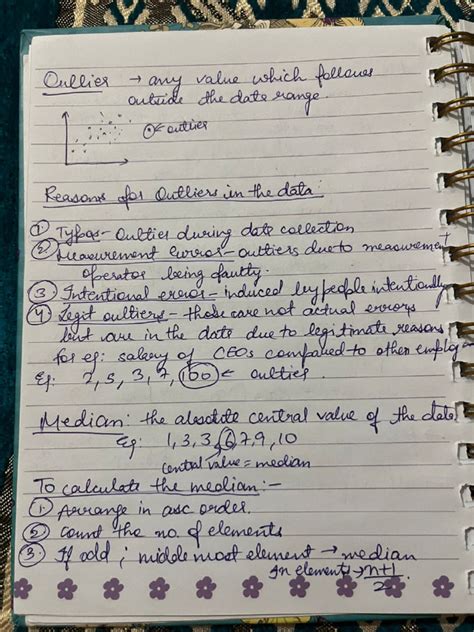 Outlier → any value which follows
outside the data range.
⊙← outlier
Reasons for Outliers in the data:
① Typos - Outlier during data collection
② Measurement error - outliers due to measurement
operator being faulty.
③ Intentional error - induced by people intentionally
④ Legit outliers - those are not actual errors
but are in the data due to legitimate reasons
for eg: salary of CEOs compared to other employ
Eg: 2, 5, 3, 7, 100 ← outlier
Median: the absolute central value of the data
Eg: 1, 3, 3, 6, 7, 9, 10
central value = median
To calculate the median:-
① Arrange in asc order.
② Count the no. of elements
③ If odd ; middle most element → median
In elements → n+1/2